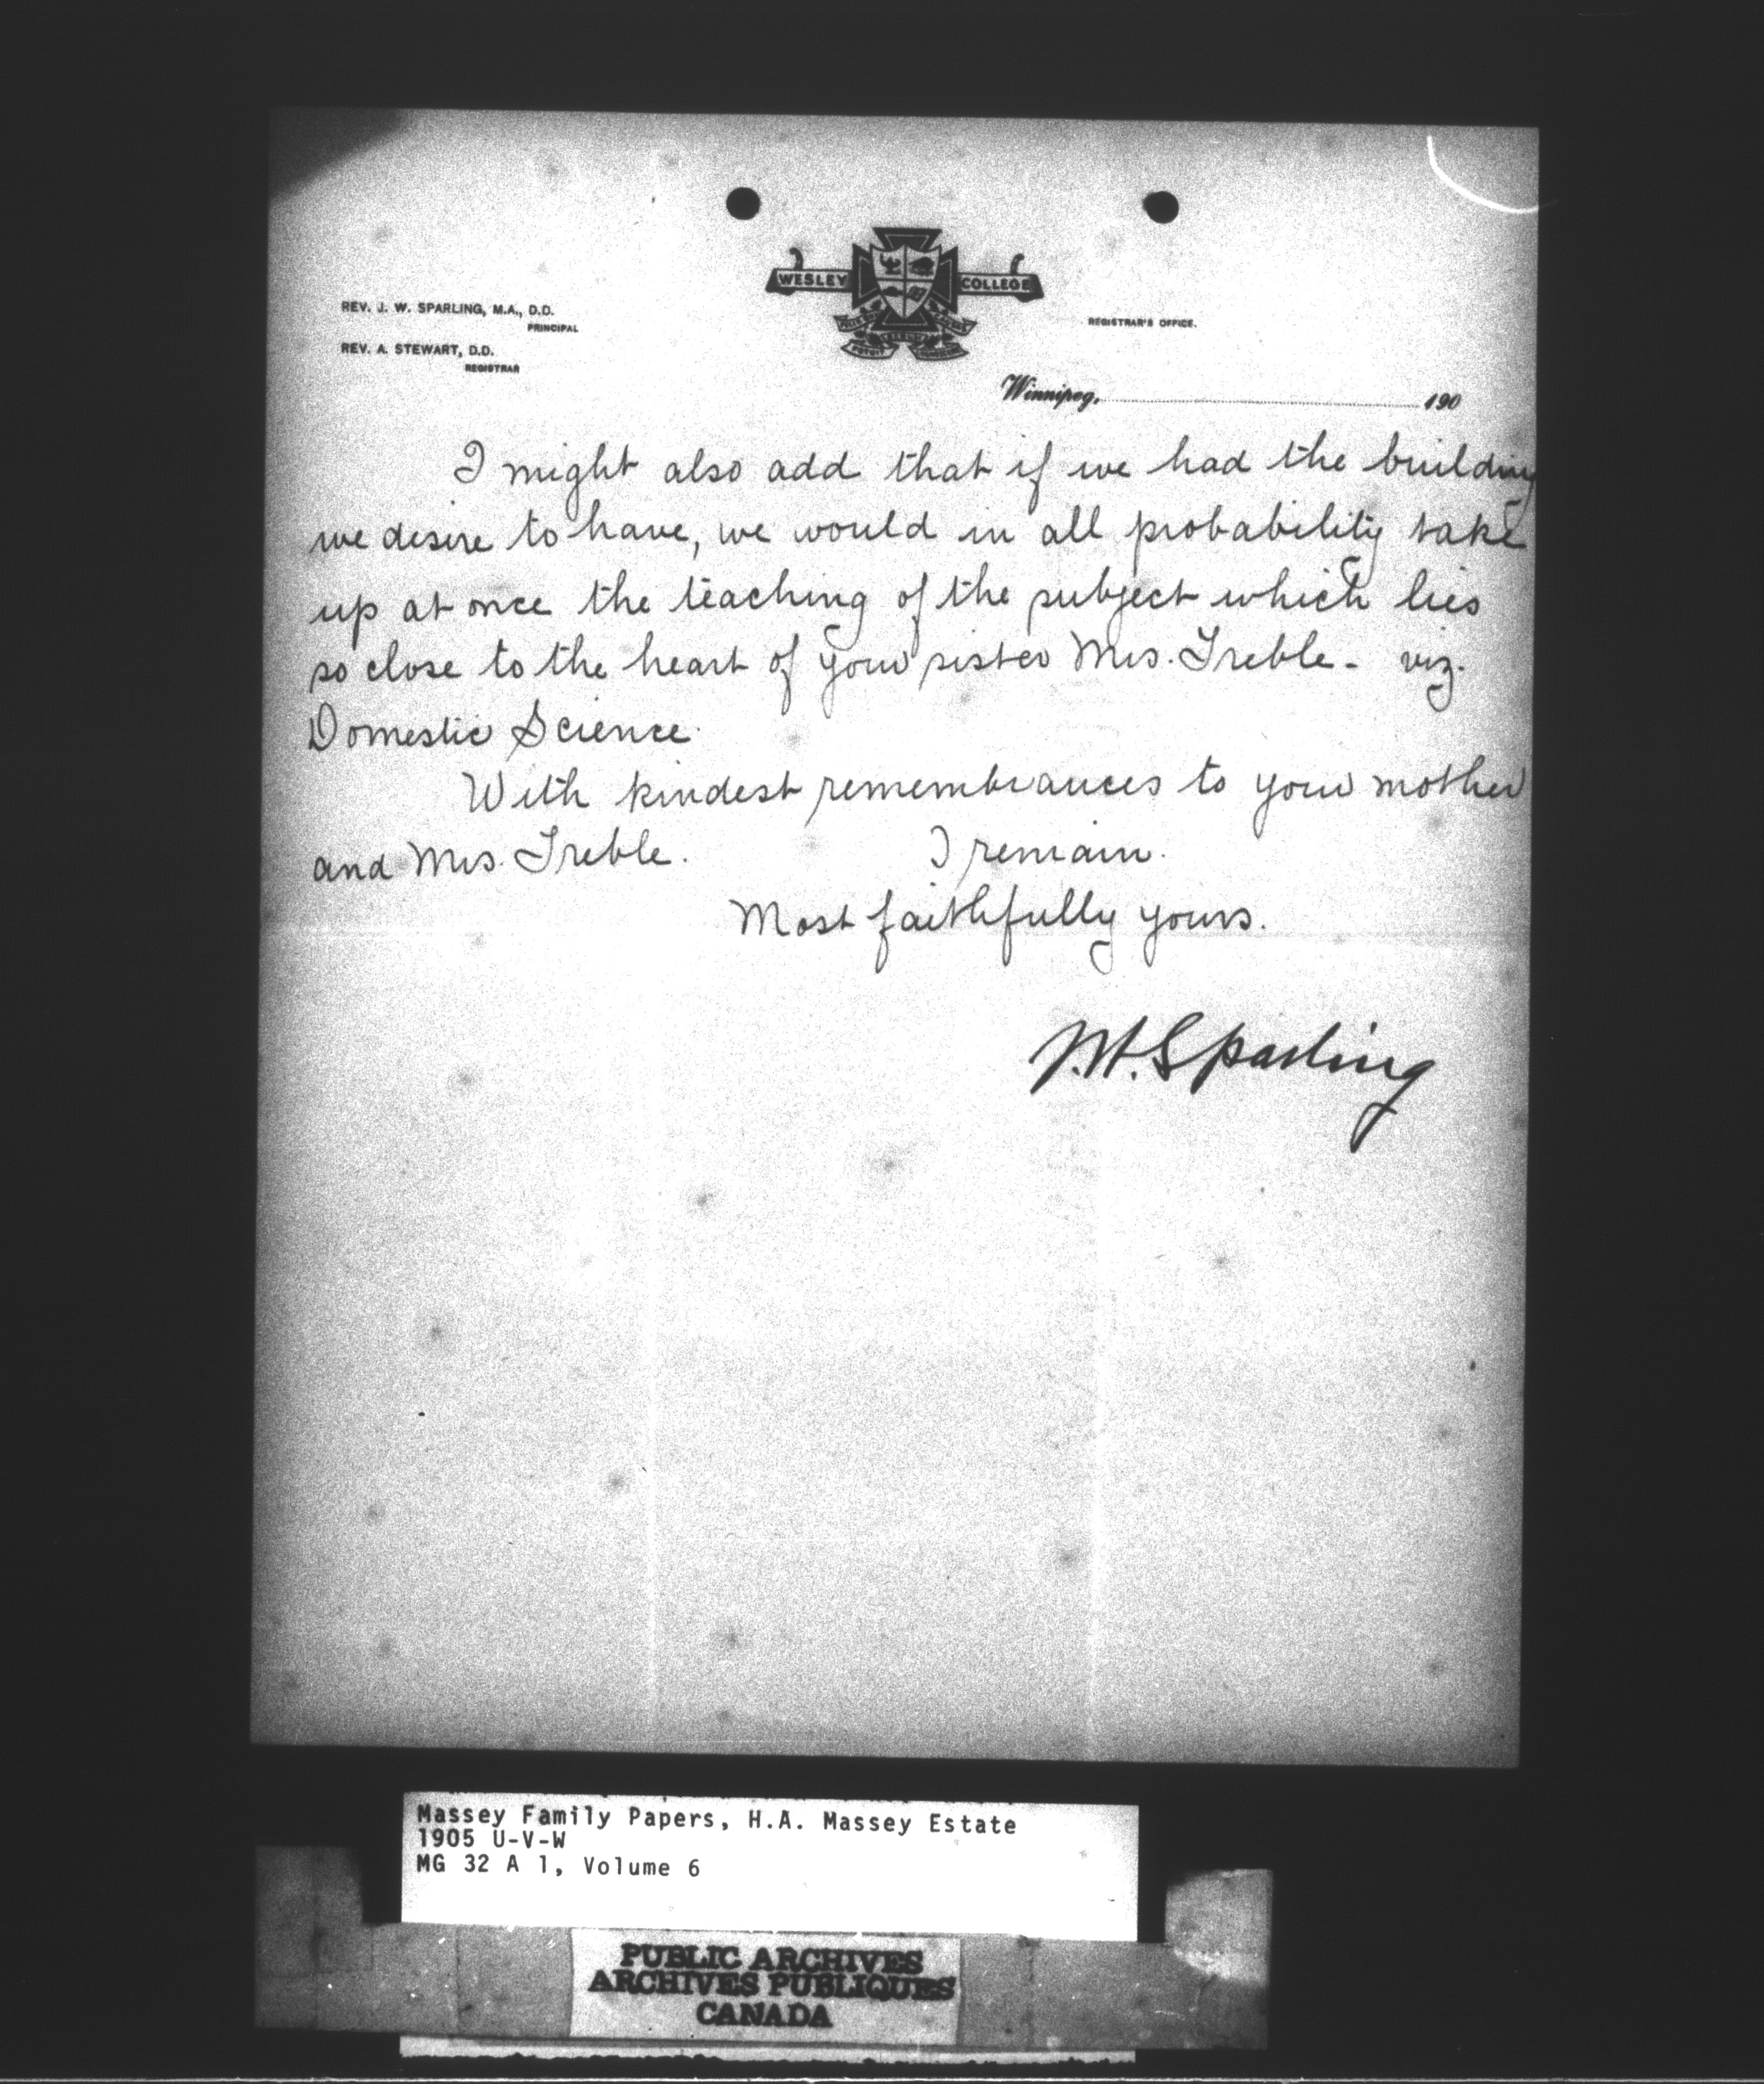 WESLEY COLLEGE
REV. J. W. SPARLING, M.A., D.D.
PRINCIPAL
REV. A. STEWART, D.D.
REGISTRAR
REGISTRAR'S OFFICE.
Winnipeg, 190
I might also add that if we had the building
we desire to have, we would in all probability take
up at once the teaching of the subject which lies
so close to the heart of your sister Mrs. Treble - viz.
Domestic Science.
With kindest remembrances to your mother
and Mrs. Treble. I remain.
Most faithfully yours.
J.W. Sparling
Massey Family Papers, H.A. Massey Estate
1905 U-V-W
MG 32 A 1, Volume 6
PUBLIC ARCHIVES
ARCHIVES PUBLIQUES
CANADA